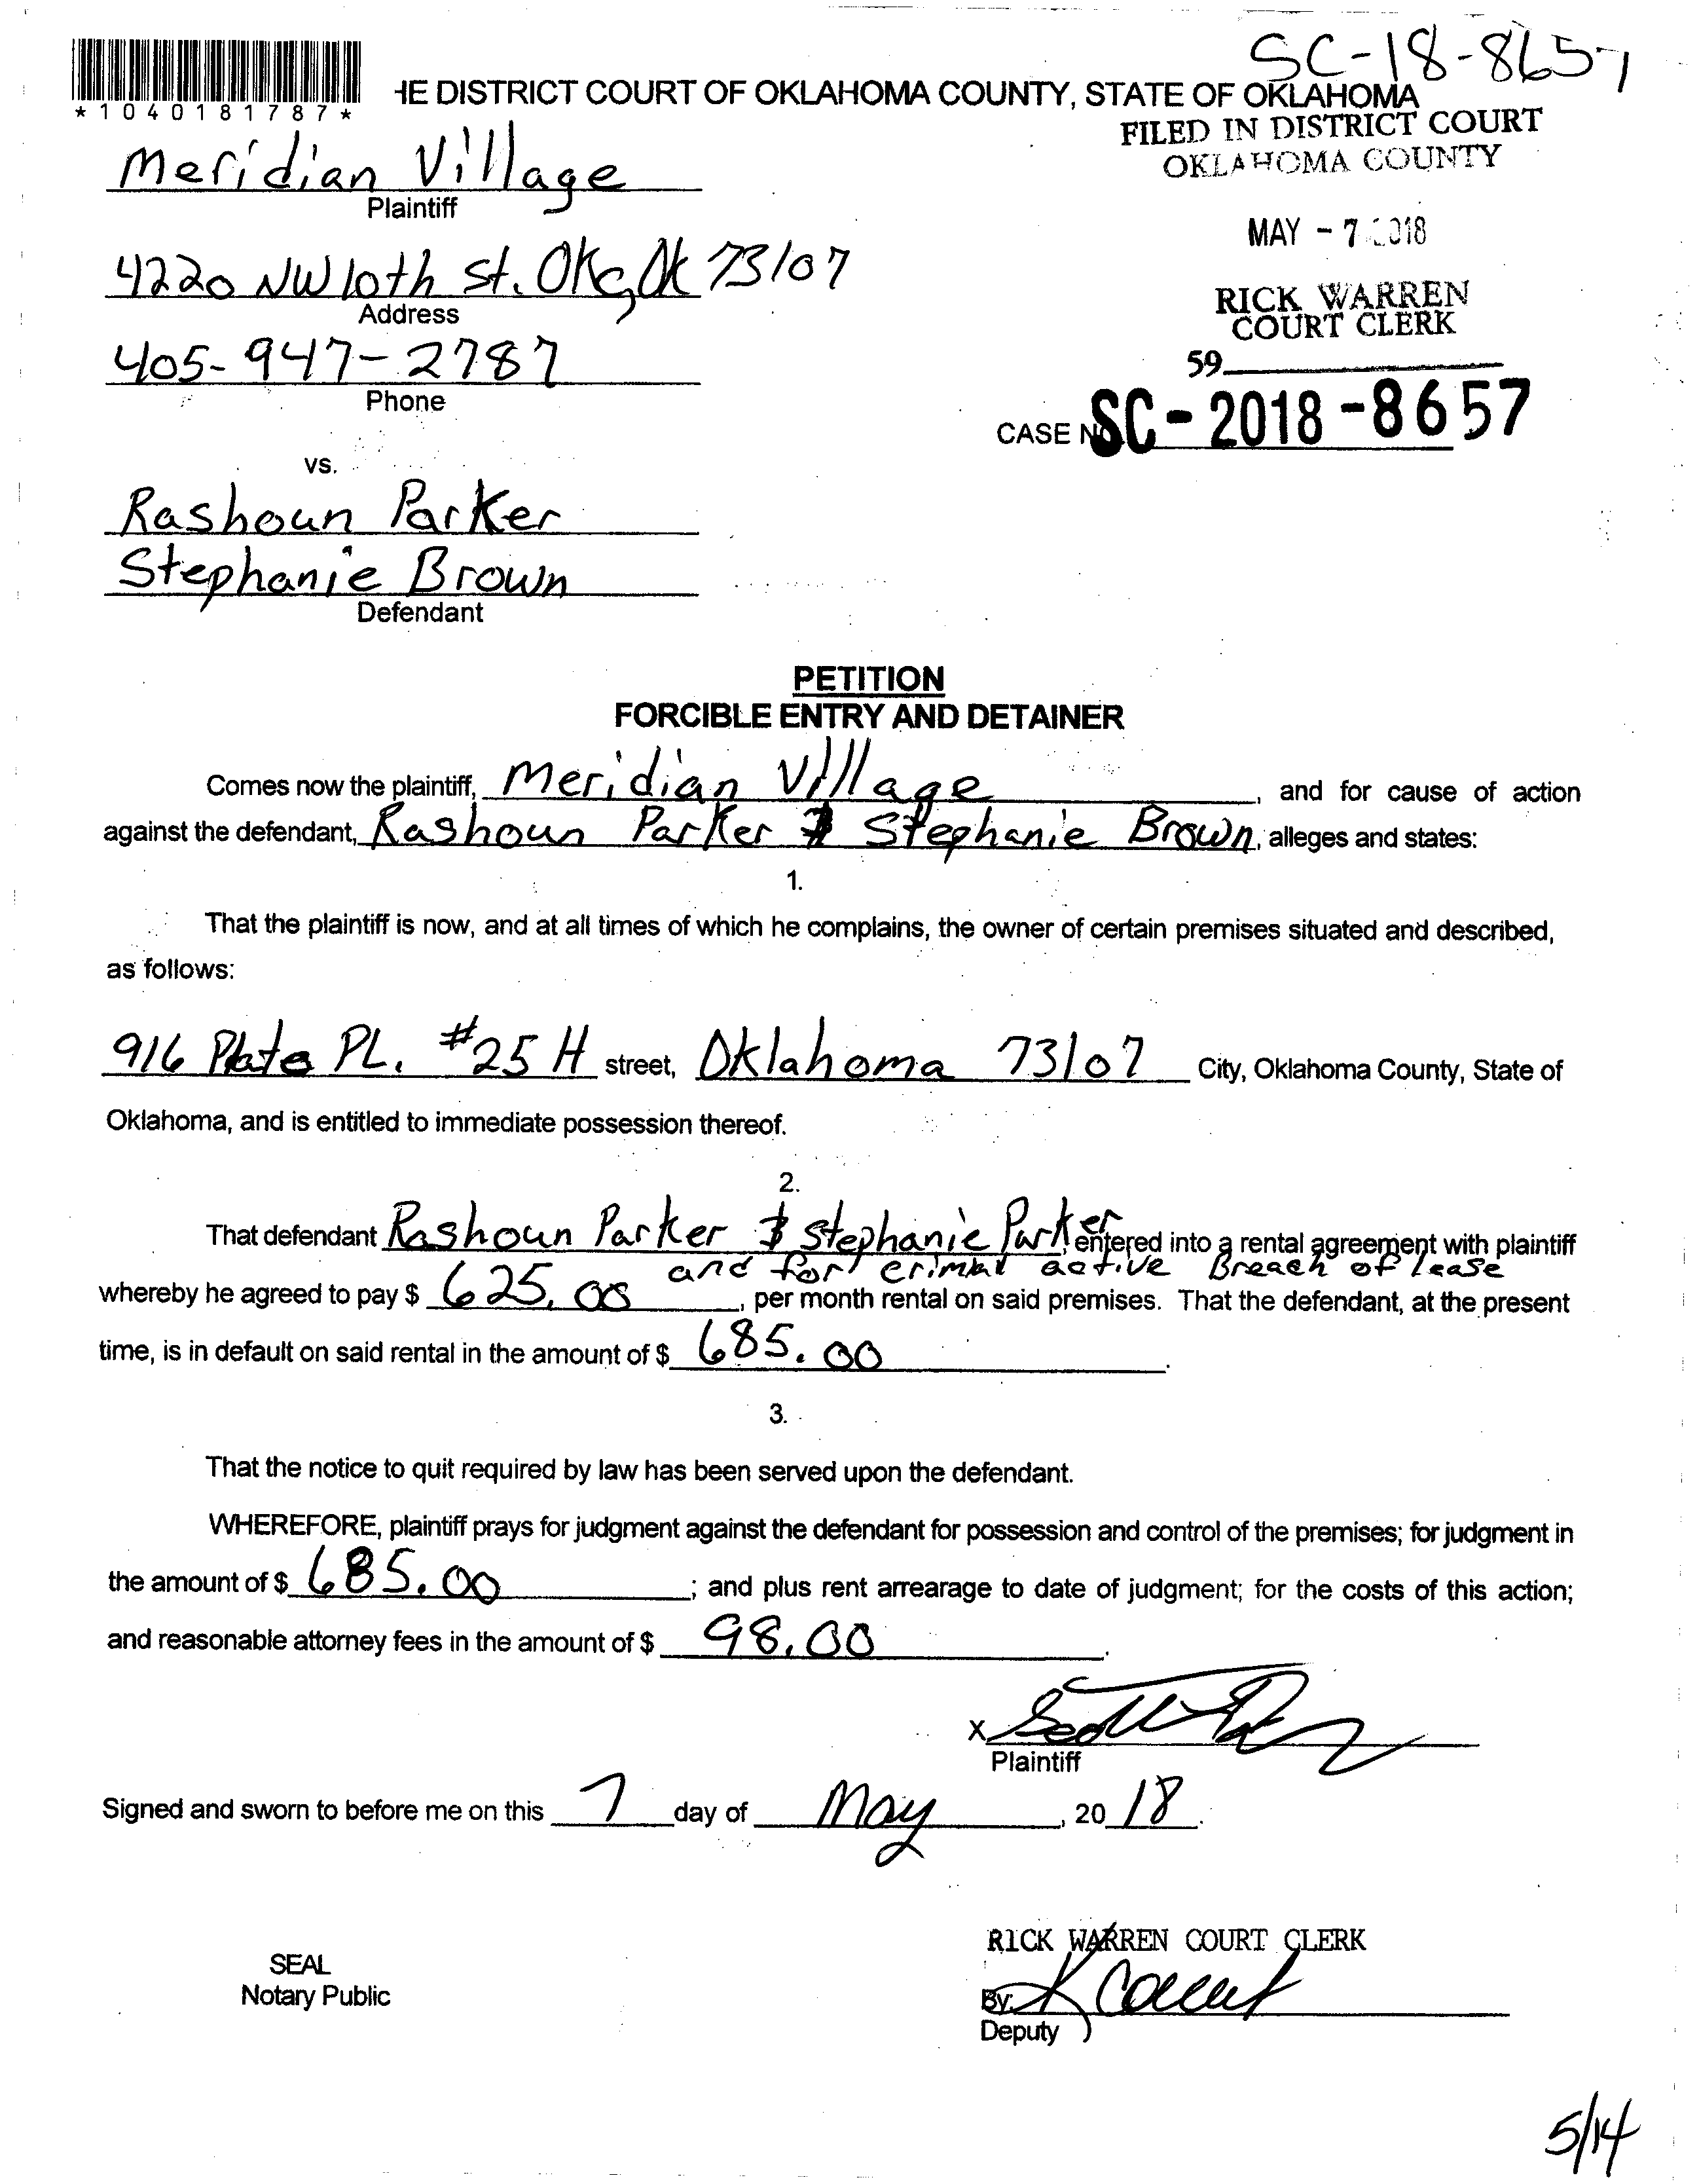 SC-18-8657
*1040181787*
HE DISTRICT COURT OF OKLAHOMA COUNTY, STATE OF OKLAHOMA
FILED IN DISTRICT COURT
OKLAHOMA COUNTY
Meridian Village
Plaintiff
MAY - 7 2018
4220 NW 10th St. OKC, Ok 73107
Address
RICK WARREN
COURT CLERK
405-947-2787
Phone
59
CASE NO. SC-2018-8657
vs.
Rashoun Parker
Stephanie Brown
Defendant
PETITION
FORCIBLE ENTRY AND DETAINER
Comes now the plaintiff, Meridian Village, and for cause of action
against the defendant, Rashoun Parker & Stephanie Brown, alleges and states:
1.
That the plaintiff is now, and at all times of which he complains, the owner of certain premises situated and described,
as follows:
916 Plate PL. #25 H street, Oklahoma 73107 City, Oklahoma County, State of
Oklahoma, and is entitled to immediate possession thereof.
2.
That defendant Rashoun Parker & Stephanie Parker, entered into a rental agreement with plaintiff
and for active Breach of lease
whereby he agreed to pay $ 625.00, per month rental on said premises. That the defendant, at the present
time, is in default on said rental in the amount of $ 685.00.
3.
That the notice to quit required by law has been served upon the defendant.
WHEREFORE, plaintiff prays for judgment against the defendant for possession and control of the premises; for judgment in
the amount of $ 685.00; and plus rent arrearage to date of judgment; for the costs of this action;
and reasonable attorney fees in the amount of $ 98.00.
X
Plaintiff
Signed and sworn to before me on this 7 day of May, 2018.
RICK WARREN COURT CLERK
SEAL
Notary Public
By:
Deputy
5/14